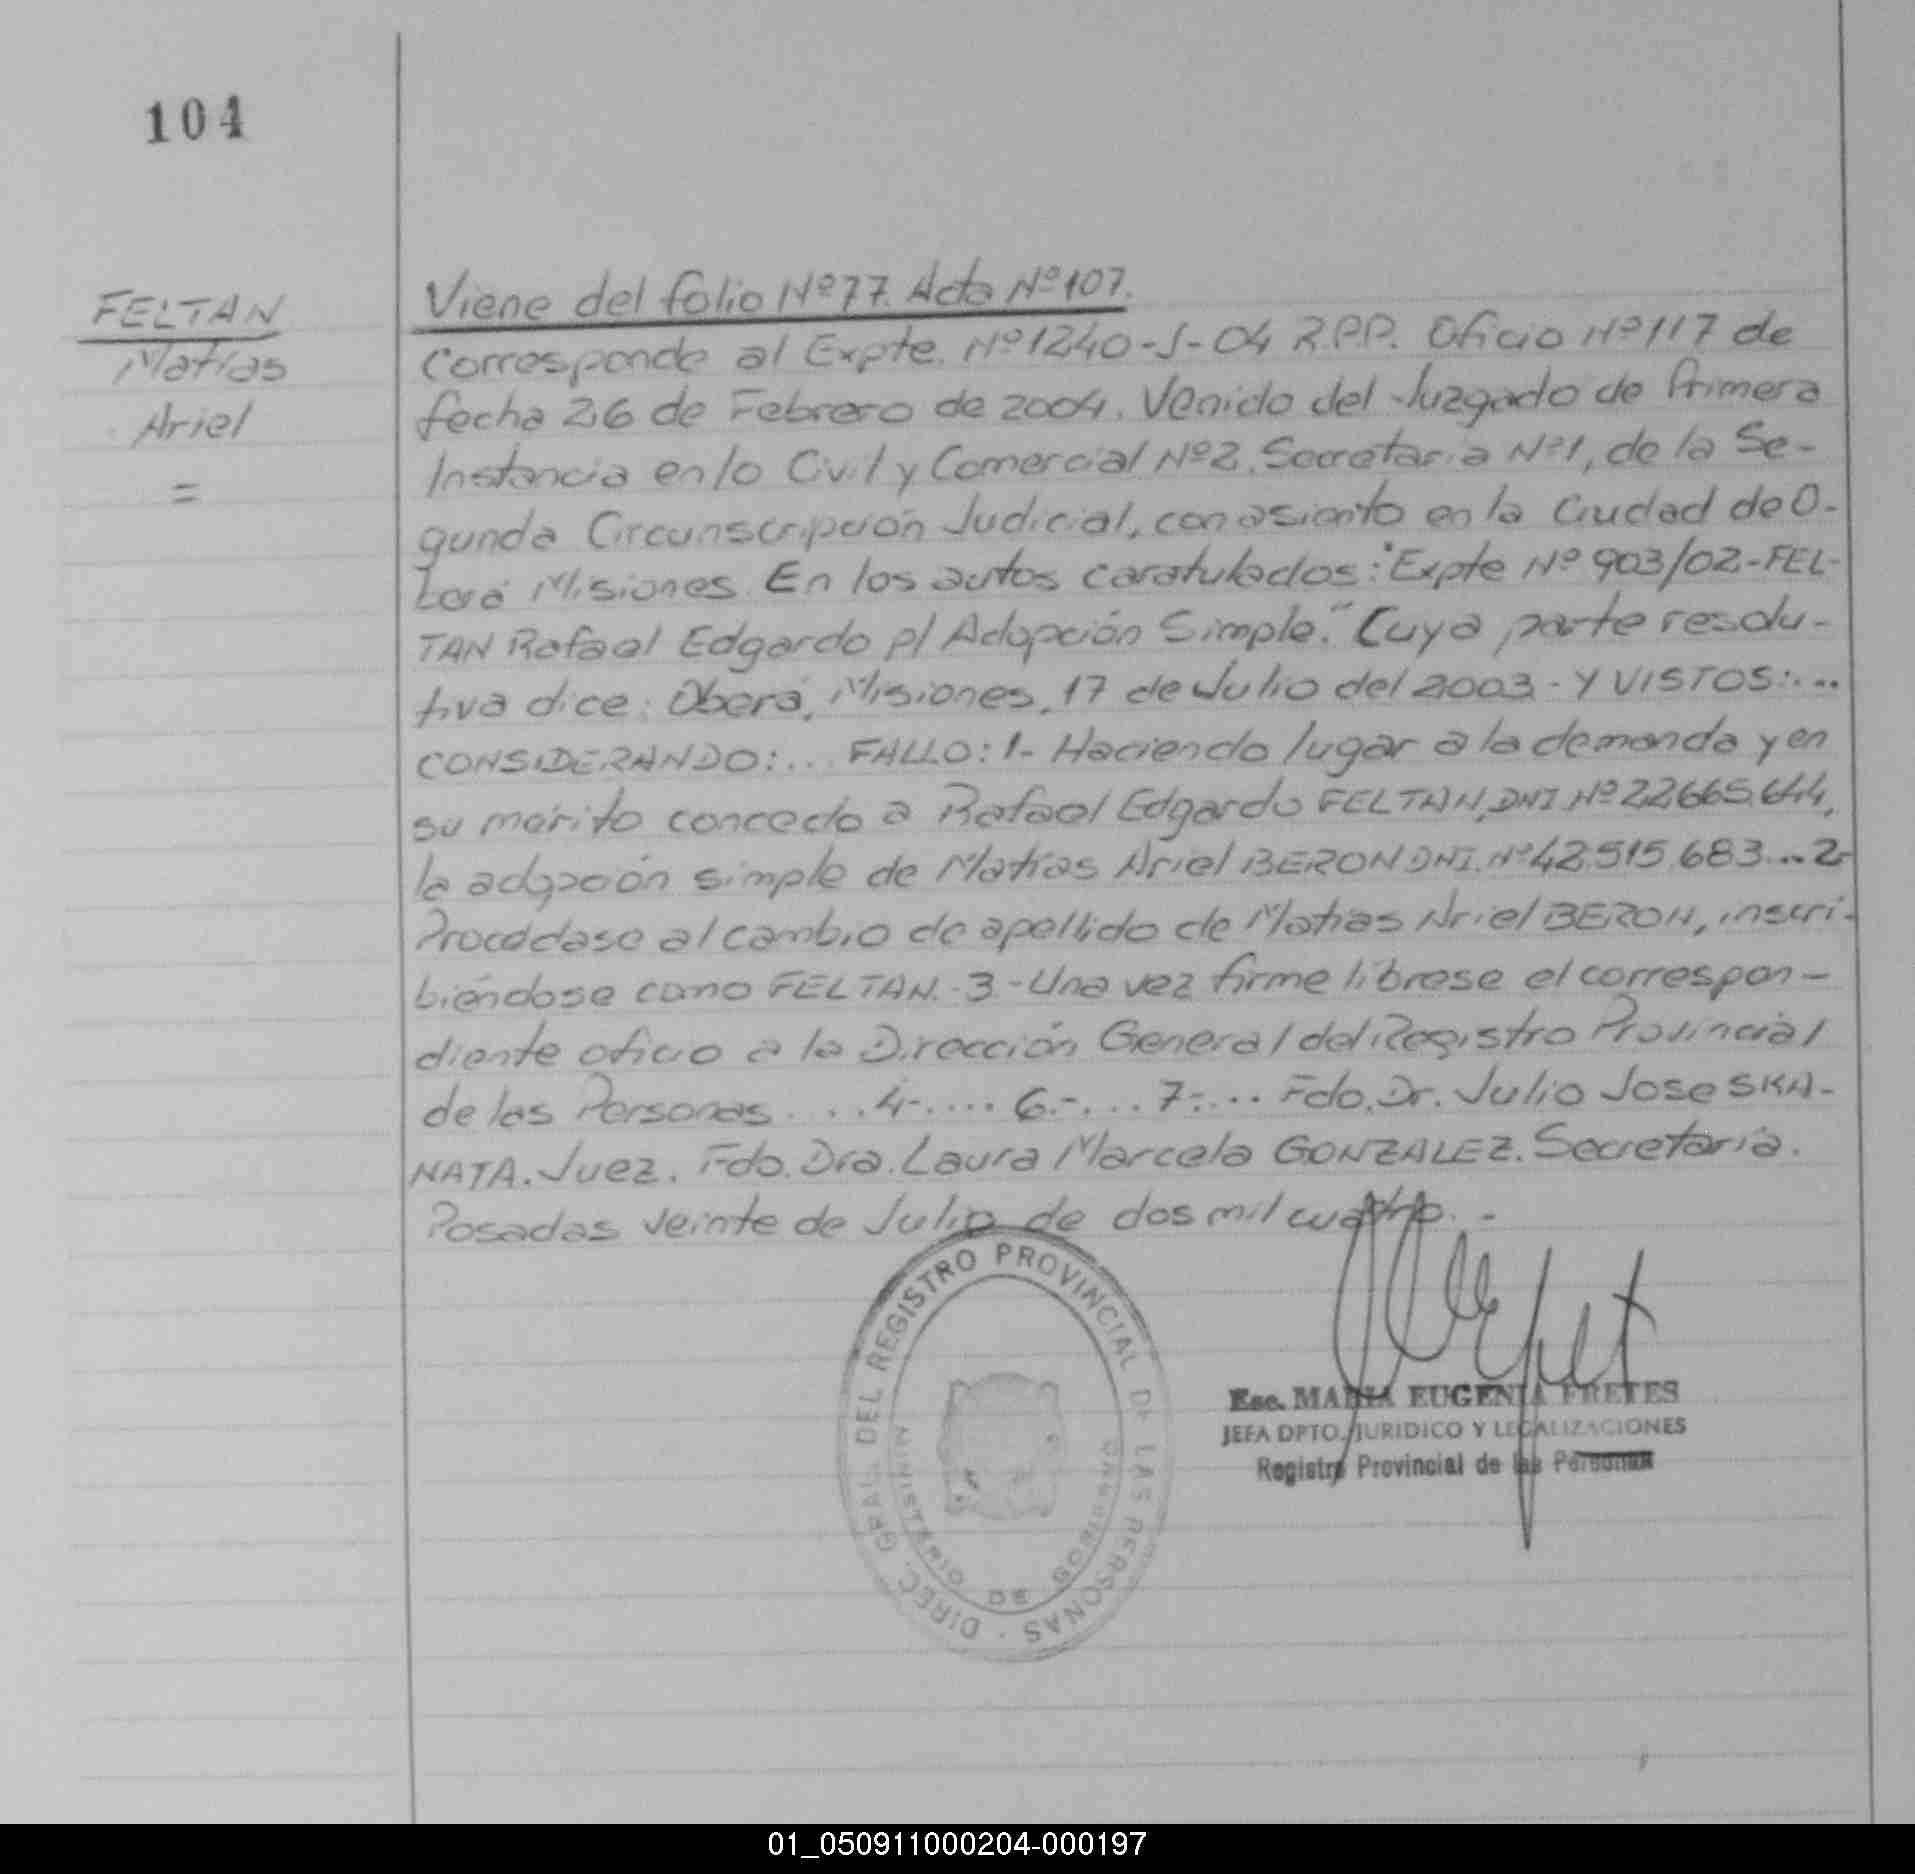 104
FELTAN
Matías
Ariel
=
Viene del folio Nº77. Acta Nº107.
Corresponde al Expte. Nº1240-J-04 R.P.P. Oficio Nº117 de
fecha 26 de Febrero de 2004. Venido del Juzgado de Primera
Instancia en lo Civil y Comercial Nº2. Secretaria Nº1, de la Se-
gunda Circunscripción Judicial, con asiento en la Ciudad de O-
berá Misiones. En los autos caratulados: "Expte Nº 903/02-FEL-
TAN Rafael Edgardo p/ Adopción Simple." Cuya parte resolu-
tiva dice: Oberá, Misiones, 17 de Julio del 2003.- Y VISTOS:...
CONSIDERANDO:... FALLO: 1- Haciendo lugar a la demanda y en
su mérito concedo a Rafael Edgardo FELTAN, DNI Nº22.665.644,
la adopción simple de Matías Ariel BERON DNI. Nº42.515.683...2-
Procédase al cambio de apellido de Matías Ariel BERON, inscri-
biéndose como FELTAN.-3-Una vez firme líbrese el correspon-
diente oficio a la Dirección General del Registro Provincial
de las Personas....4-.... 6.-... 7-.... Fdo. Dr. Julio Jose SKA-
NATA. Juez. Fdo. Dra. Laura Marcela GONZALEZ. Secretaria.
Posadas veinte de Julio de dos mil cuatro.-
DIREC. GRAL. DEL REGISTRO PROVINCIAL DE LAS PERSONAS
MINISTERIO DE GOBIERNO
Esc. MARIA EUGENIA FRETES
JEFA DPTO. JURIDICO Y LEGALIZACIONES
Registro Provincial de las Personas
01_050911000204-000197